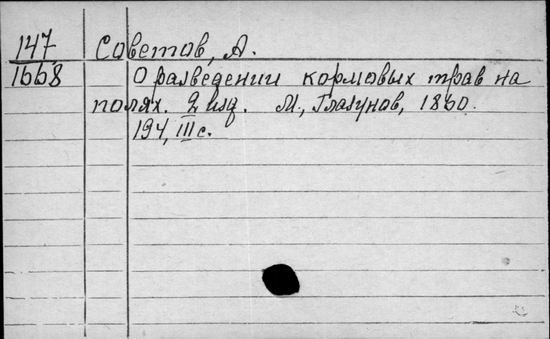 147 Советов, А.
1668 О разведении кормовых трав на
полях. 2 изд. М., Глазунов, 1860.
194, III с.